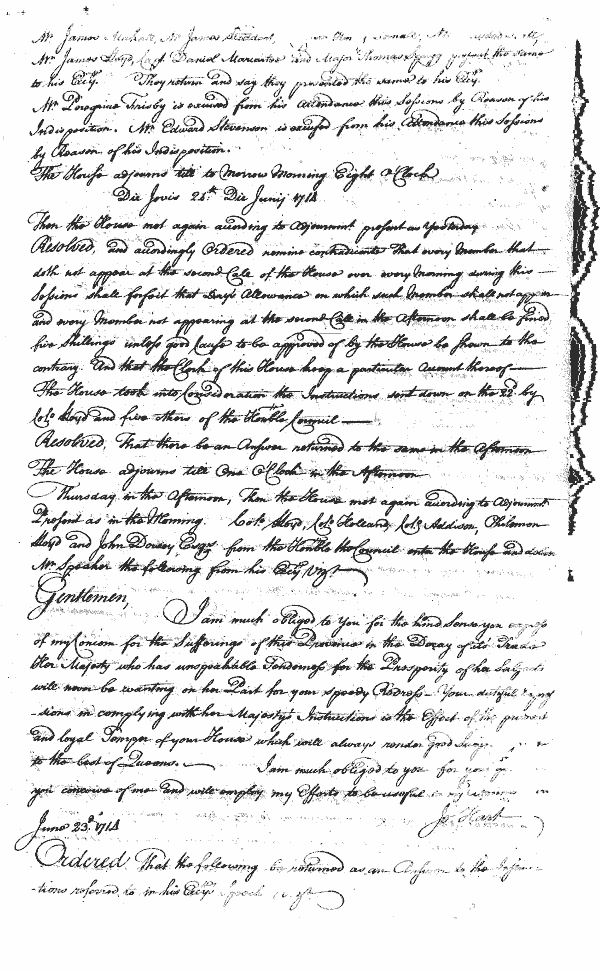 Mr. James Mr. James Stoddart,
Mr. James Lloyd, Capt. Daniel Mariartee and Major Thomas present the same
to his Excy. They return and say they presented the same to his Excy.
Mr. Peregrine Frisby is excused from his Attendance this Sessions by Reason of his
Indisposition. Mr. Edward Stevenson is excused from his Attendance this Sessions
by Reason of his Indisposition.
The House adjourns till to Morrow Morning Eight o'Clock
Die Jovis 24th. Die Junij 1714
Then the House met again according to Adjournment present as Yesterday
Resolved, and accordingly Ordered nemine contradicente That every Member that
doth not appear at the second Call of the House over every Morning during this
Sessions shall forfeit that Day's Allowance on which such Member shall not appear
and every Member not appearing at the second Call in the Afternoon shall be fined
five Shillings unless good Cause to be approved of by the House be shewn to the
contrary. And that the Clerk of this House keep a particular Account thereof
The House took into Consideration the Instructions sent down on the 22d by
Colo. Lloyd and five others of the Honble Council
Resolved, That there be an Answer returned to the same in the Afternoon
The House adjourns till One o'Clock in the Afternoon
Thursday in the Afternoon, Then the House met again according to Adjournmt.
Present as in the Morning. Colo. Lloyd, Colo. Holland, Colo. Addison, Philemon
Lloyd and John Dorsey Esqrs. from the Honble the Council enter the House and deliver
Mr. Speaker the following from his Excy Vizt.
Gentlemen,
I am much obliged to You for the kind Sense you express
of my Concern for the Sufferings of this Province in the Decay of its Trade
Her Majesty who has unspeakable Tenderness for the Prosperity of her Subjects
will never be wanting on her Part for your speedy Redress. Your dutiful
-sions in complying with her Majesty's Instructions is the Effect of the prudent
and loyal Temper of your House which will always render good
to the best of Queens. I am much obliged to you for
you conceive of me and will employ my Efforts to be useful in my
Jo. Hart
June 23d. 1714
Ordered That the following be returned as an Answer to the Instruc-
-tions referred to in his Excys Speech Vizt.